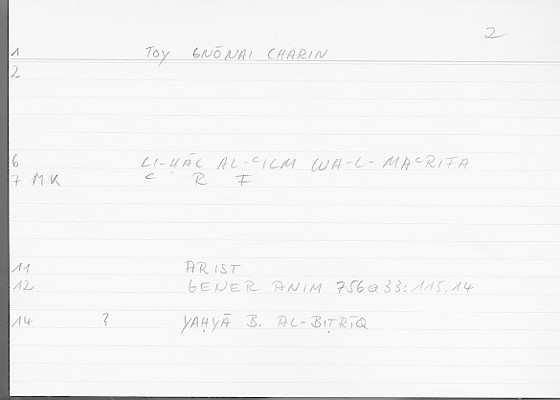 2
1 TOY GNŌNAI CHARIN
2
6 LI-ḤĀL AL-ʿILM WA-L-MAʿRIFA
7 MK C R F
11 ARIST
12 GENER ANIM 756a33:115.14
14 ? YAḤYĀ B. AL-BIṬRĪQ